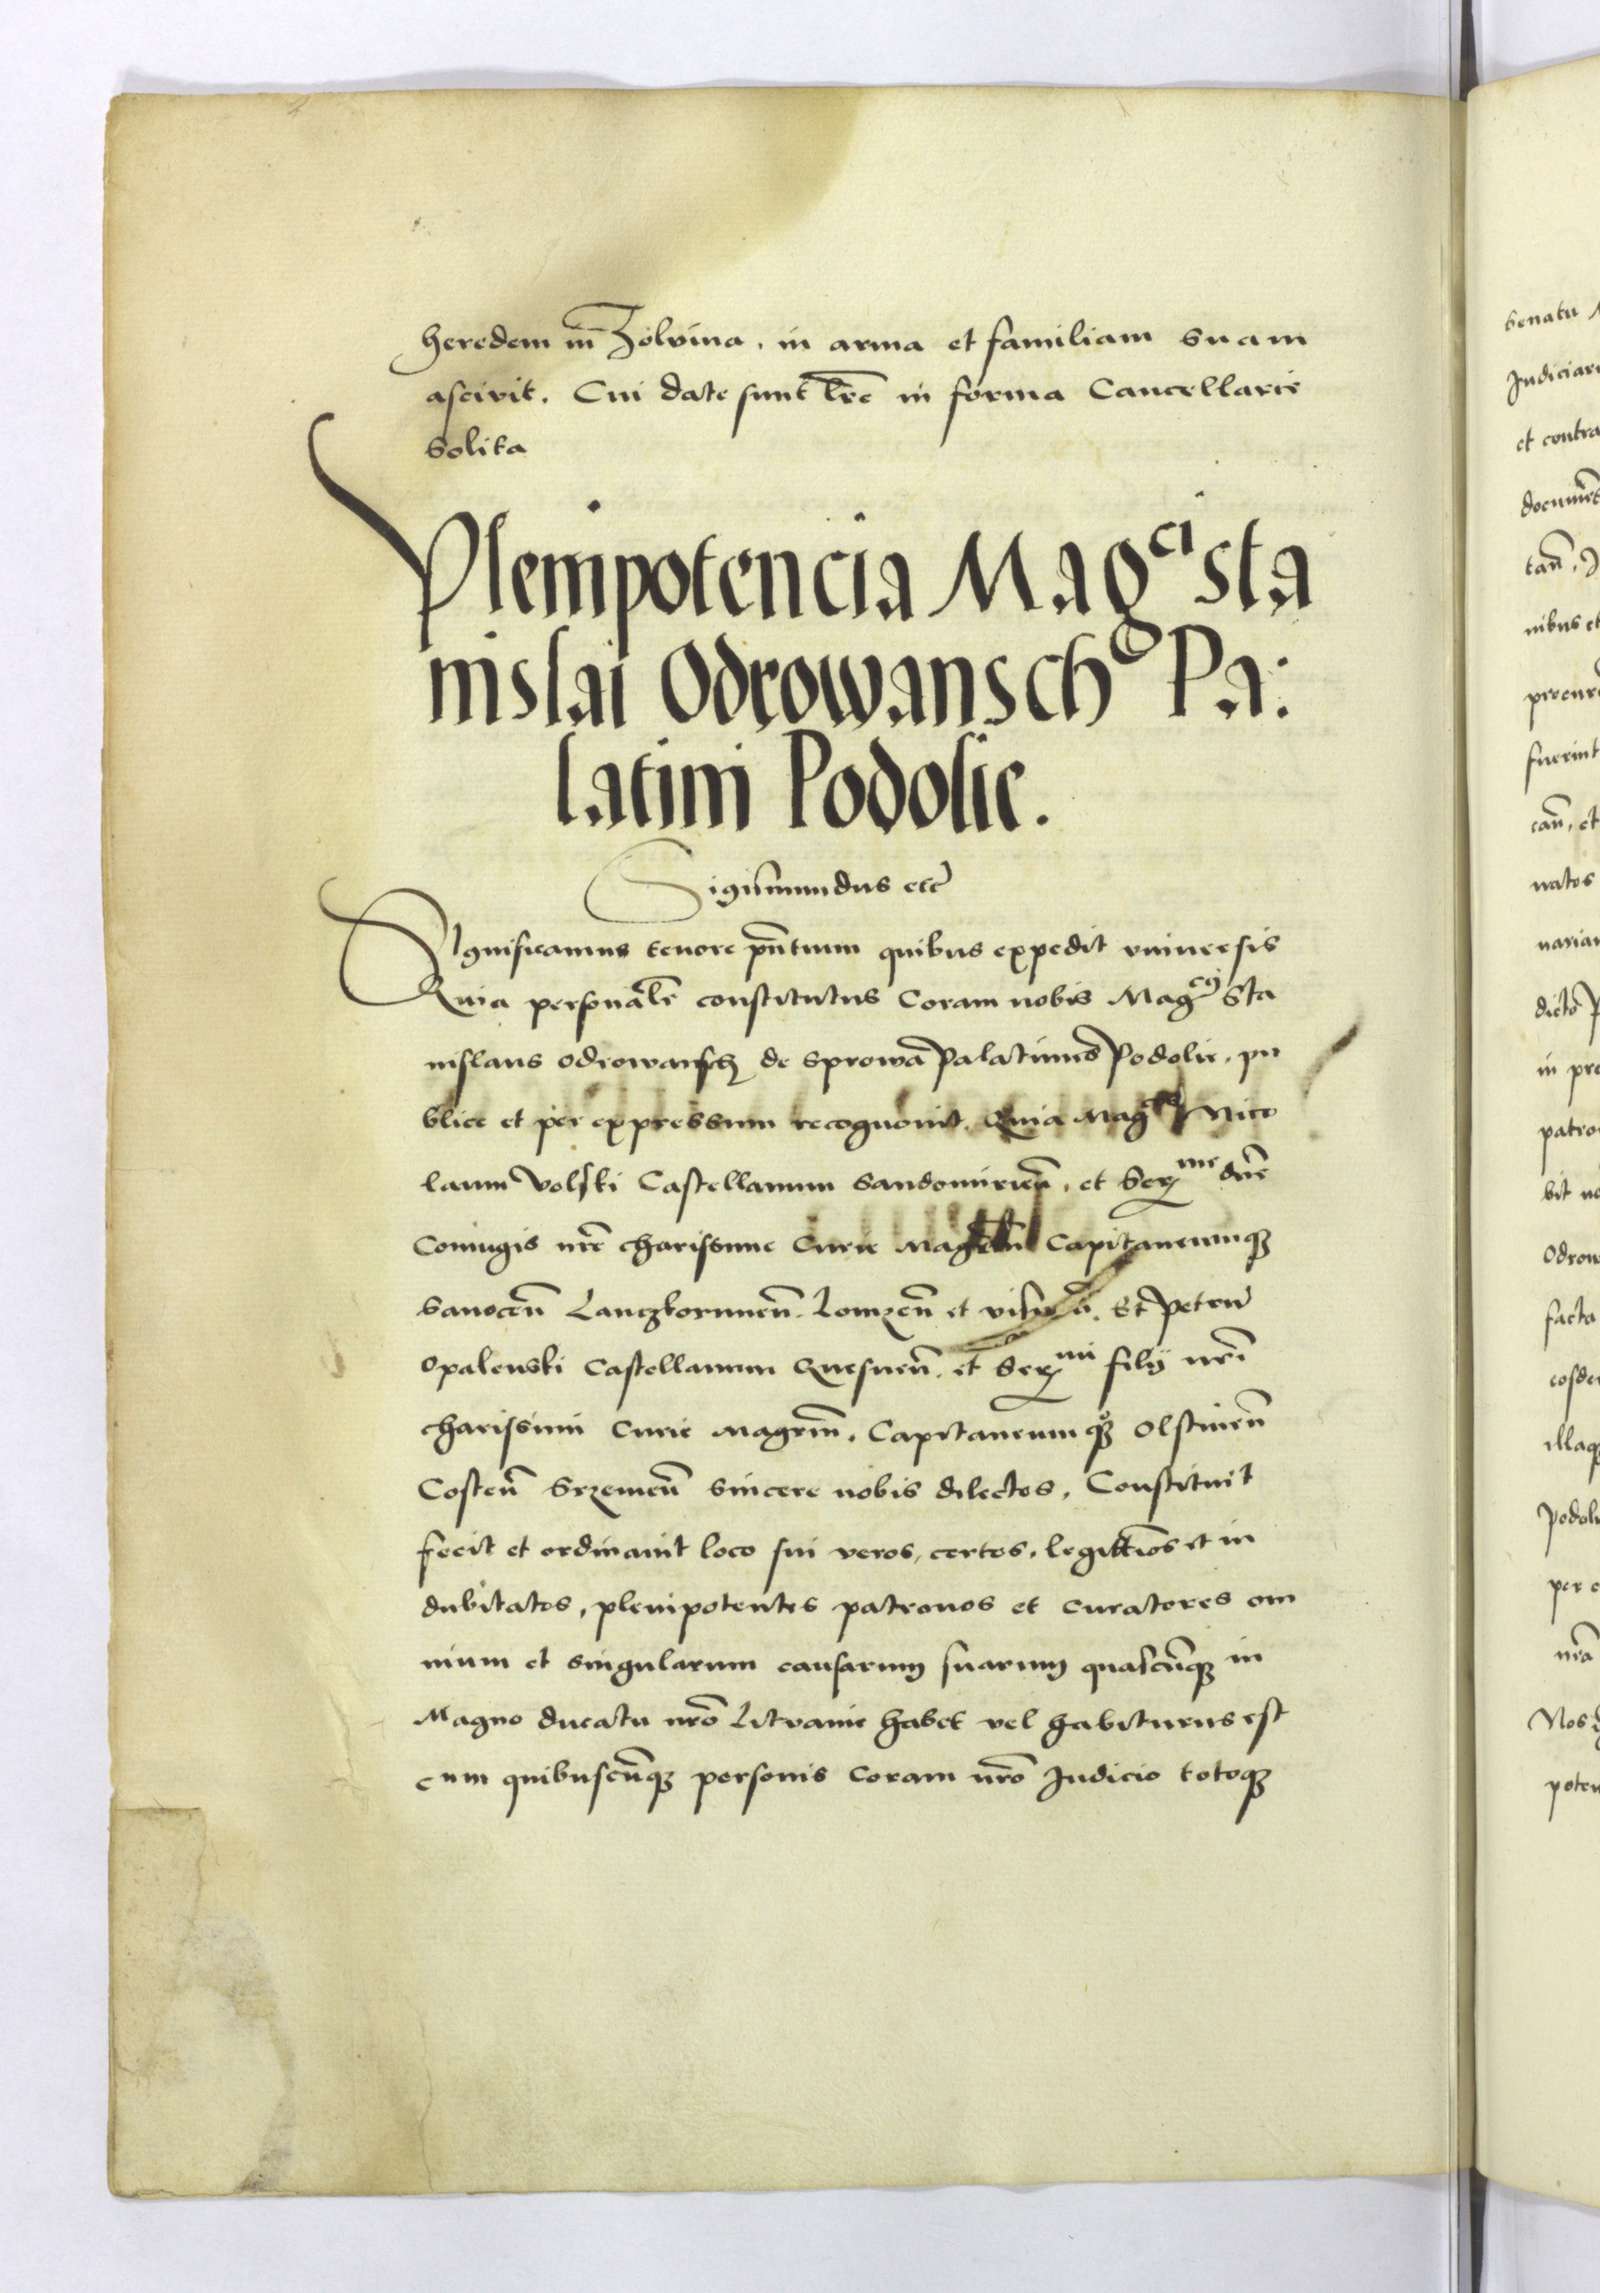 heredem in Zolvina, in arma et familiam suam
ascivit. Cui date sunt lr̃e in forma Cancellarie
solita
Plenipotencia Mag^ci Sta
nislai Odrowansch Pa:
latini Podolie.
Sigismundus etc̃
Significamus tenore pñtium quibus expedit universis
Quia personalr̃ constitutus Coram nobis Mag^cus Sta
nislaus odrowansch de Sprowa Palatinus Podolie, pu
blice et per expressum recognovit. Quia Mag^cos Nico
laum Volski Castellanum Sandomirieñ, et Ser^me dñe
Coniugis nr̃e charissime Curie Magr̃m Capitaneumqȝ
Sanoceñ Lanczkoruneñ. Lomzeñ et visneñ. Et Petrũ
Opalenski Castellanum Gnesneñ. et Ser^mi filij nr̃i
charissimi Curie Magrm̃, Capitaneumqȝ Olstineñ
Costeñ Srzemeñ sincere nobis dilectos, Constituit
fecit et ordinavit loco sui veros, certos, legittĩos et in
dubitatos, plenipotentes patronos et curatores om
nium et singularum causarum suarum quascũqȝ in
Magno ducatu nr̃o Litvanie habet vel habiturus est
cum quibuscũqȝ personis coram nr̃o Judicio totoqȝ
senatu
Judiciari
et contra
documẽt
tañ,
nibus et
procur
fuerint
cañ, et
natos
narian
dicto P
in pre
patro
bit no
Odrow
facta
eosde
illaqȝ
Podoli
per e
nr̃a
Nos
poten